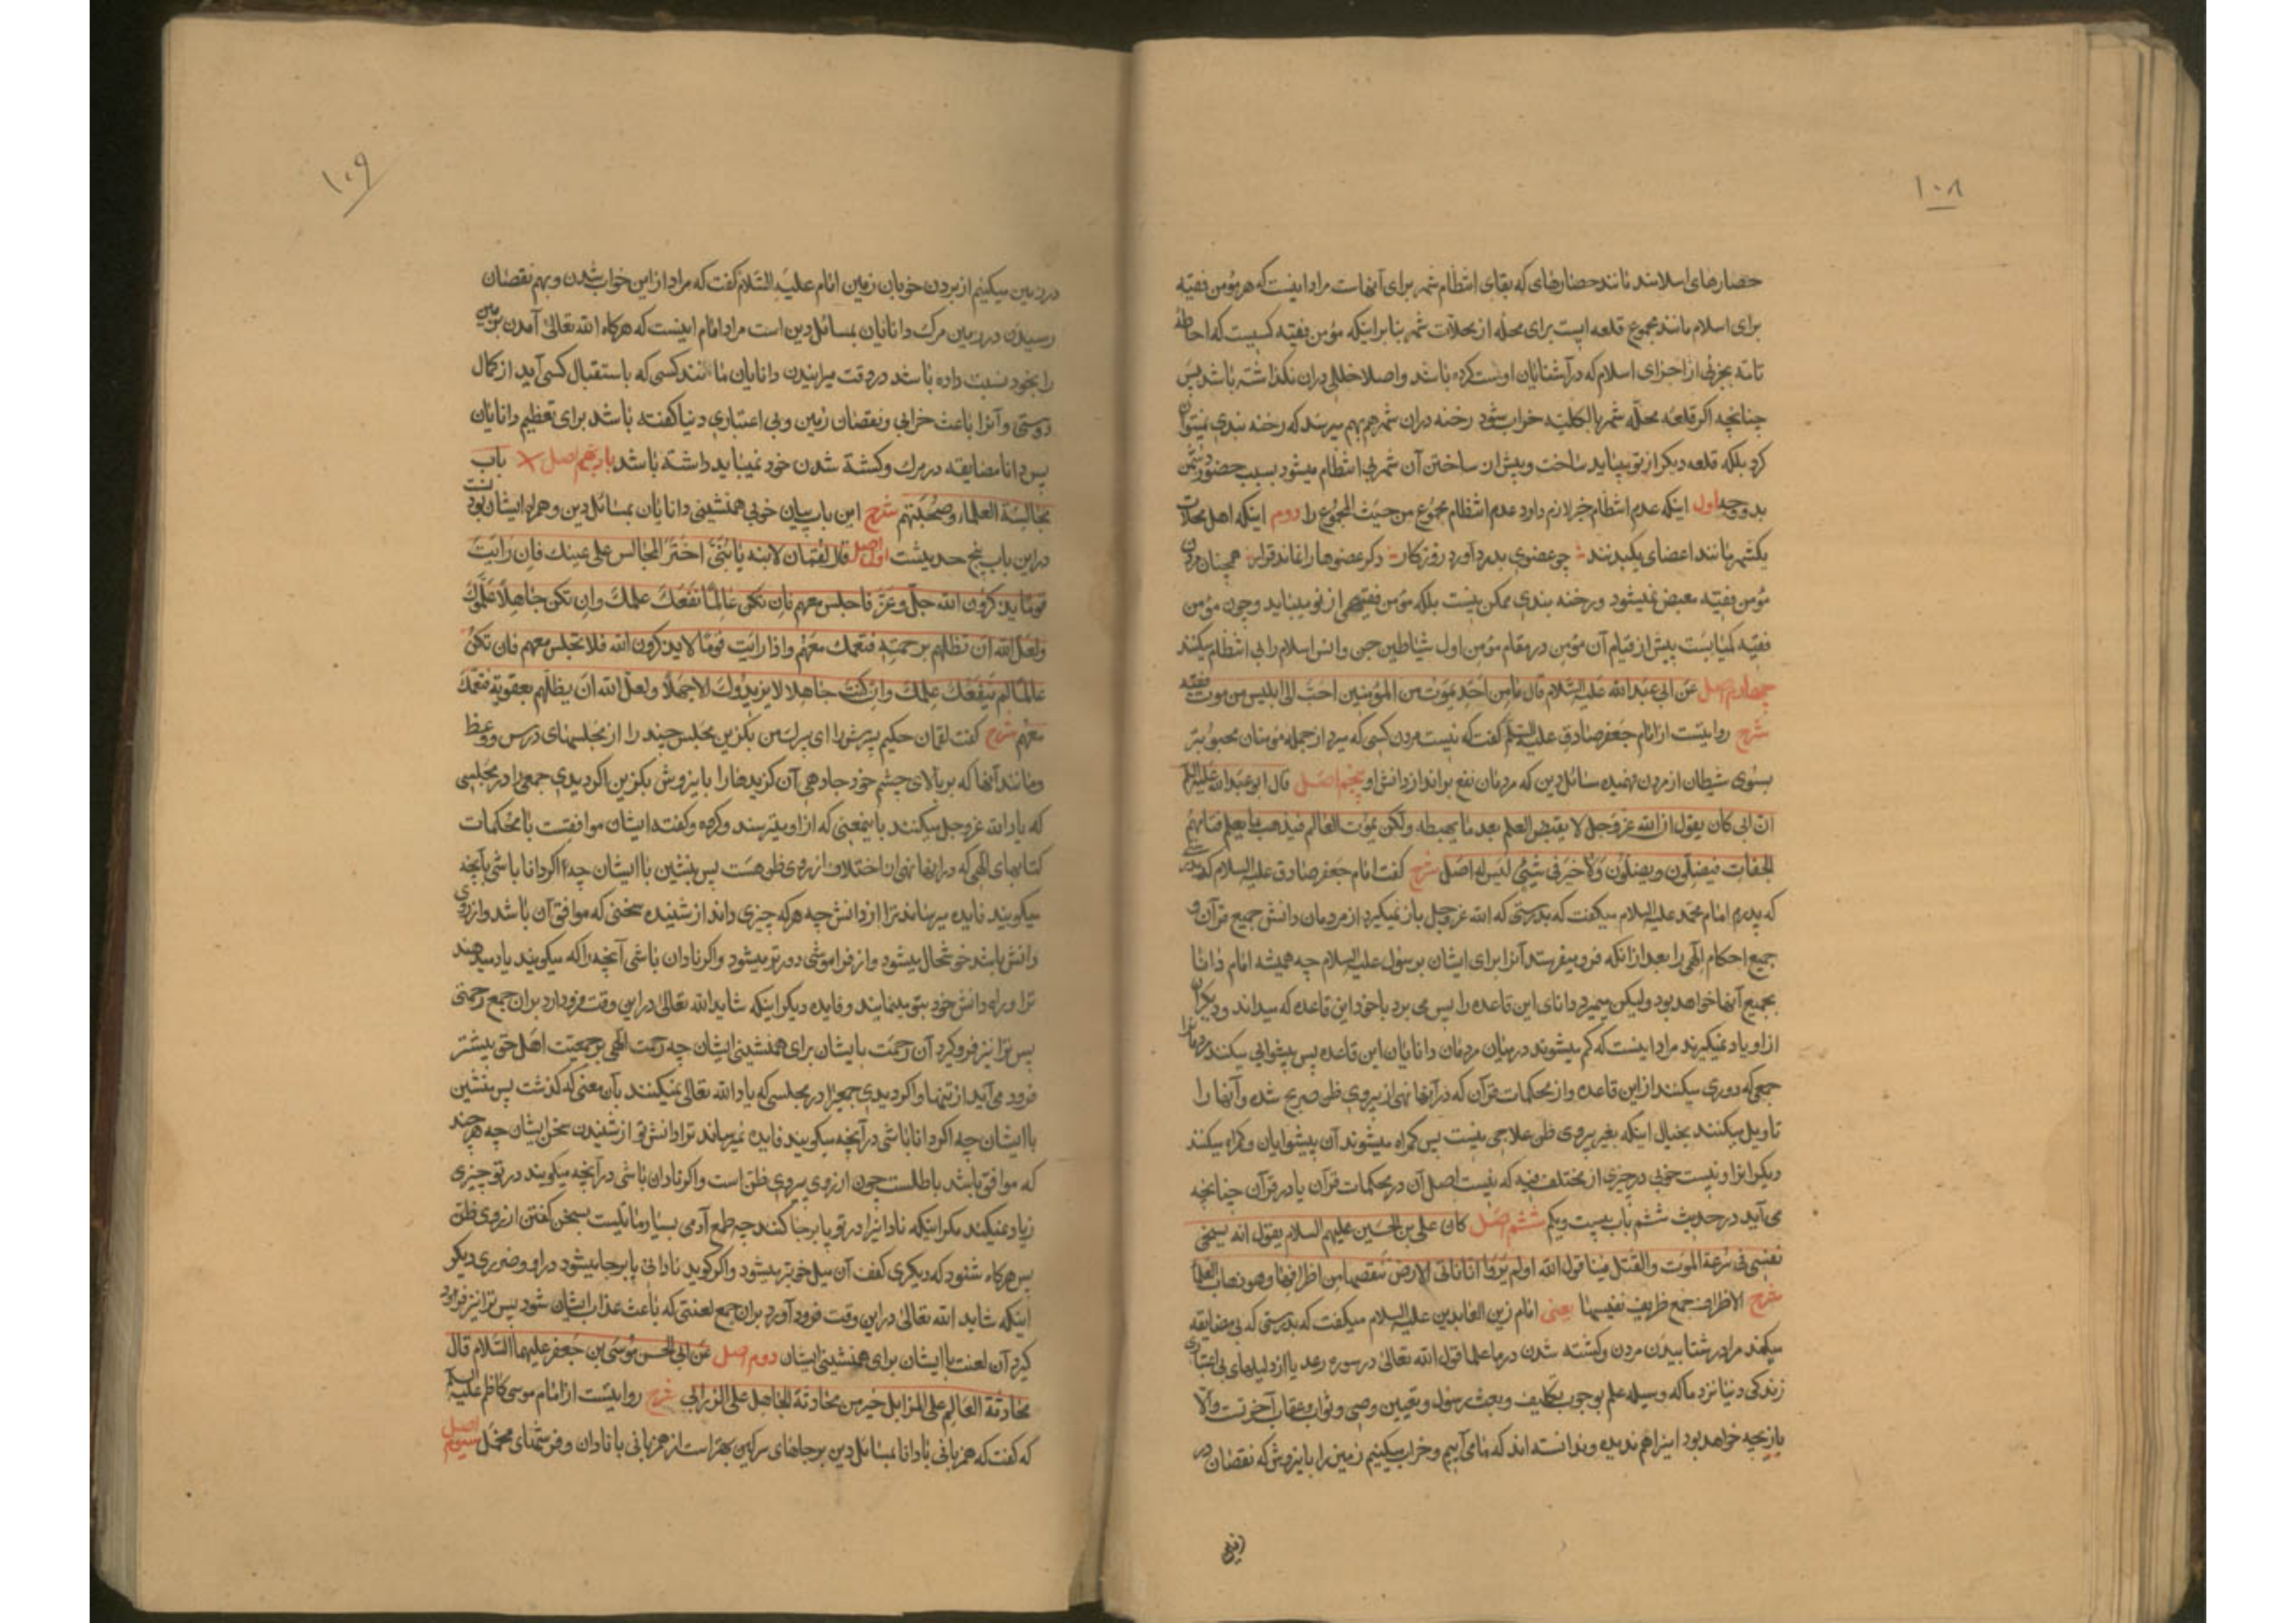 ١٠٨
حصارهای اسلامند مانند حصارهای که بقای انتظام شهر برای آنهاست مراد اینست که هر مؤمن فقیه
برای اسلام مانند مجموع قلعه ایست برای محله از محلات شهر بنابر اینکه مؤمن فقیه کسیست که احاطهٔ
تامّه بجزئی از اجزای اسلام که در آشنایان اوست کرده باشد و اصلا خللی دران نگذاشته باشد پس
چنانچه اگر قلعه محلّه شهر بالکلیه خراب شود رخنه دران شهر هم بهم میرسد که رخنه بندی نمیتوان
کرد بلکه قلعه دیگر از نو میباید ساخت و پیش ازان ساختن آن شهر بی انتظام میشود بسبب حضور دشمن
بدو وجه اول اینکه عدم انتظام جزء لازم دارد عدم انتظام مجموع من حیث المجموع را دوم اینکه اهل محلات
یکشهر مانند اعضای یکبدنند چو عضوی بدرد آورد روزگار دگر عضوها را نماند قرار همچنان مردن
مؤمن فقیه معبض نمیشود و رخنه بندی ممکن نیست بلکه مؤمن فقیهی از نو میباید و چون مؤمن
فقیه کمیابست پیش از قیام آن مؤمن در مقام مؤمن اول شیاطین جن و انس اسلام را بی انتظام میکنند
چهارم اصل عن ابی عبد الله علیه السلام قال ما من احد یموت من المؤمنین احب الی ابلیس من موت فقیه
شرح روایتست از امام جعفر صادق علیه السلام گفت که نیست مردن کسی که میرد از جمله مؤمنان محبوبتر
بسوی شیطان از مردن فهمیده مسائل دین که مردمان نفع برانداز دانش او پنجم اصل قال ابو عبد الله علیه السلام
ان ابی کان یقول ان الله عز وجل لا یقبض العلم بعد ما یهبطه ولکن یموت العالم فیذهب بما یعلم فتأمهم
الجفات فیضلون ویضلون ولا خیر فی شیئ لیس له اصل شرح گفت امام جعفر صادق علیه السلام که بدرستی
که پدرم امام محمد علیه السلام میگفت که بدرستی که الله عز وجل باز نمیگیرد از مردمان دانش جمیع قرآن و
جمیع احکام الهی را بعد ازانکه فرو میفرستد آنرا برای ایشان برسول علیه السلام چه همیشه امام دانا
بجمیع آنها خواهد بود ولیکن میمیرد دانای این قاعده را پس می برد با خود این قاعده که میداند و دیگران
از او یاد نمیگیرند مراد اینست که کم میشوند در میان مردمان دانایان این قاعده پس پیشوایی میکنند مردمانرا
جمعی که دوری میکنند از این قاعده و از محکمات قرآن که در آنها نهی از پیروی ظن صریح شده و آنها را
تاویل میکنند بخیال اینکه بغیر پیروی ظن علاجی نیست پس گمراه میشوند آن پیشوایان و گمراه میکنند
دیگرانرا و نیست خوبی در چیزی از مختلف فیه که نیست اصل آن در محکمات قرآن یا در قرآن چنانچه
می آید در حدیث ششم باب بیست و یکم ششم اصل کان علی بن الحسین علیهم السلام یقول انه یسخی
نفسی فی سرعة الموت والقتل فینا قول الله اولم یروا انا ناتی الارض ننقصها من اطرافها وهو ذهاب العلماء
شرح الاطراف جمع ظریف نفیسها یعنی امام زین العابدین علیه السلام میگفت که بدرستی که بی مضایقه
میکند مرا در شتابیدن مردن و کشته شدن در ما علما قول الله تعالی در سوره رعد یا از دلیلهای بی اعتباری
زندگی دنیا نزد ما که وسیله علم بوجوب تکلیف و بعث رسول و تعیین وصی و ثواب و عقاب آخرتست والا
بازیچه خواهد بود اینرا هم ندیده و ندانسته اند که ما می آییم و خراب میکنیم زمین را باینروش که نقصان در
١٠٩
در زمین میکنیم از بردن خوبان زمین امام علیه السلام گفت که مراد از این خراب شدن و بهم نقصان
رسیدن در زمین مرگ دانایان بمسائل دین است مراد امام اینست که هرگاه الله تعالی آمدن بزمین
را بخود نسبت داده باشد در وقت میرانیدن دانایان مانند کسی که باستقبال کسی آید از کمال
دوستی و آنرا باعث خرابی و نقصان زمین و بی اعتباری دنیا گفته باشد برای تعظیم دانایان
پس دانا مضایقه در مرگ و کشته شدن خود نمیباید داشته باشد یازدهم اصل باب
مجالسة العلماء وصحبتهم شرح این باب بیان خوبی همنشینی دانایان بمسائل دین و همراه ایشان بودنست
در این باب پنج حدیثست اول اصل قال لقمان لابنه یا بنی اختر المجالس علی عینک فان رایت
قوما یذکرون الله جل وعز فاجلس معهم فان تکن عالما نفعک علمک وان تکن جاهلا علموک
ولعل الله ان تظلهم برحمته فتعمک معهم واذا رایت قوما لا یذکرون الله فلا تجلس معهم فان تکن
عالما لم ینفعک علمک وان کنت جاهلا لا یزیدوک الا جهلا ولعل الله ان یظلهم بعقوبة فتعمک
معهم شرح گفت لقمان حکیم پسرش را ای پسرک من بگزین مجلس چند را از مجلسهای درس و وعظ
و مانند آنها که بر بالای چشم خود جا دهی آن گزیدها را باینروش بگزین اگر دیدی جمعی را در مجلسی
که یاد الله عز وجل میکنند باینمعنی که از او میترسند و کرده و گفته ایشان موافقست با محکمات
کتابهای الهی که در انها نهی ازان اختلاف از روی ظن هست پس بنشین با ایشان چه اگر دانا باشی بآنچه
میگویند فایده میرساند ترا از دانش چه هر که چیزی داند از شنیده سخنی که موافق آن باشد و از روی
دانش باشد خوشحال میشود و از فراموشی دورتر میشود و اگر نادان باشی آنچه را که میگویند یاد میدهند
ترا و راه دانش خود بتو مینمایند و فایده دیگر اینکه شاید الله تعالی در این وقت فرود آرد بران جمع رحمتی
پس ترا نیز فرو گیرد آن رحمت با یشان برای همنشینی ایشان چه رحمت الهی بر جمعیت اهل حق بیشتر
فرود می آید از تنها و اگر دیدی جمعیرا در مجلسی که یاد الله تعالی نمیکنند بآن معنی که گذشت پس منشین
با ایشان چه اگر دانا باشی در آنچه میگویند فایده نمیرساند ترا دانش تو از شنیدن سخن ایشان چه هر چند
که موافق باشد باطلست چون از روی پیروی ظن است و اگر نادان باشی در آنچه میگویند در تو چیزی
زیاد نمیکنند مگر اینکه نادانیرا در تو پابرجا کنند چه طبع آدمی بسیار مایلست بسخن گفتن از روی ظن
پس هرگاه شنود که دیگری گفت آن میل خوبتر میشود و اگر گوید نادانی پابرجا میشود در او و ضرری دیگر
اینکه شاید الله تعالی در این وقت فرود آورد بران جمع لعنتی که باعث عذاب ایشان شود پس ترا نیز فرو
گیرد آن لعنت با ایشان برای همنشینی ایشان دوم اصل عن ابی الحسن موسی بن جعفر علیهما السلام قال
محادثة العالم علی المزابل خیر من محادثة الجاهل علی الزرابی شرح روایتست از امام موسی کاظم علیه السلام
که گفت که همزبانی بادانا بمسائل دین بر جاهای سرگین بهتر است از همزبانی با نادان و فرشهای مخمل سیوم اصل